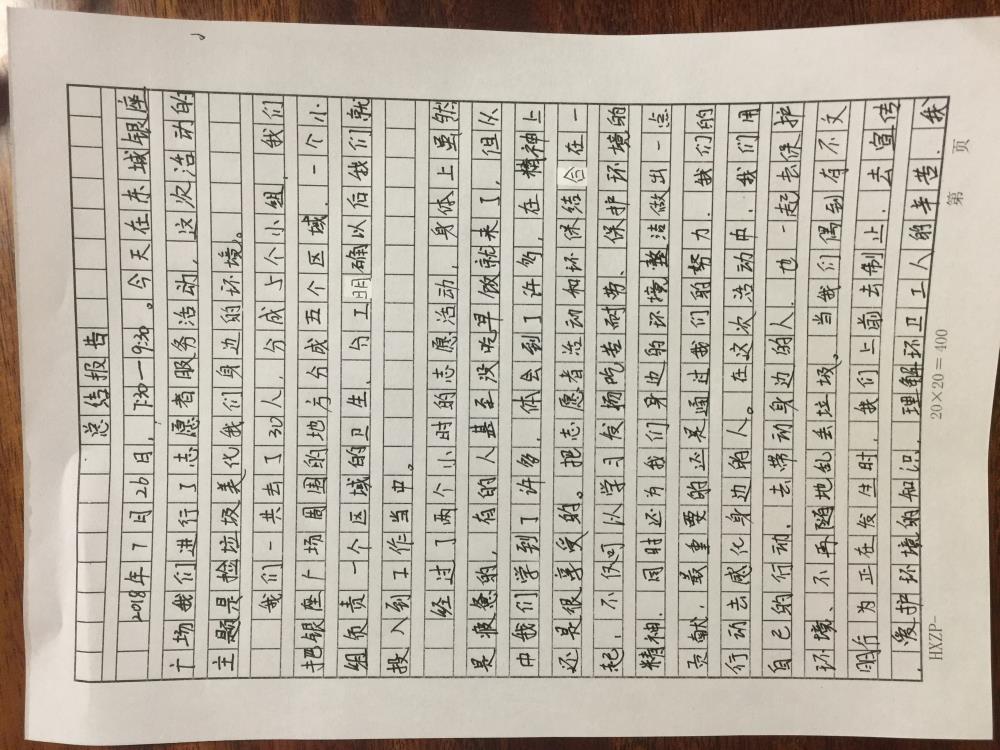 总结报告
2018年7月26日，7:30—9:30。今天在东城银座
广场我们进行了志愿者服务活动，这次活动的
主题是捡垃圾美化我们身边的环境。
我们一共去了30人，分成5个小组，我们
把银座广场周围的地方分成五个区域，一个小
组负责一个区域的卫生，分工明确以后我们就
投入到工作当中。
经过了两个小时的志愿活动，身体上虽然
是疲惫的，有的人甚至没吃早饭就来了，但从
中我们学到了许多，体会到了许多，在精神上
还是很享受的。把志愿者活动和环保结合在一
起，不仅可以学习发扬吃苦耐劳、保护环境的
精神，同时还为我们身边的环境整洁做出一点
贡献，最重要的还是通过我们的努力，我们的
行动去感化身边的人。在这次活动中，我们用
自己的行动，去带动身边的人，也一起去保护
环境、不再随地乱丢垃圾。当我们偶到有不文
明行为正在发生时，我们上前去制止，去宣传
，爱护环境的知识，理解环卫工人的辛苦，我
HXZP—
20×20=400
第
页